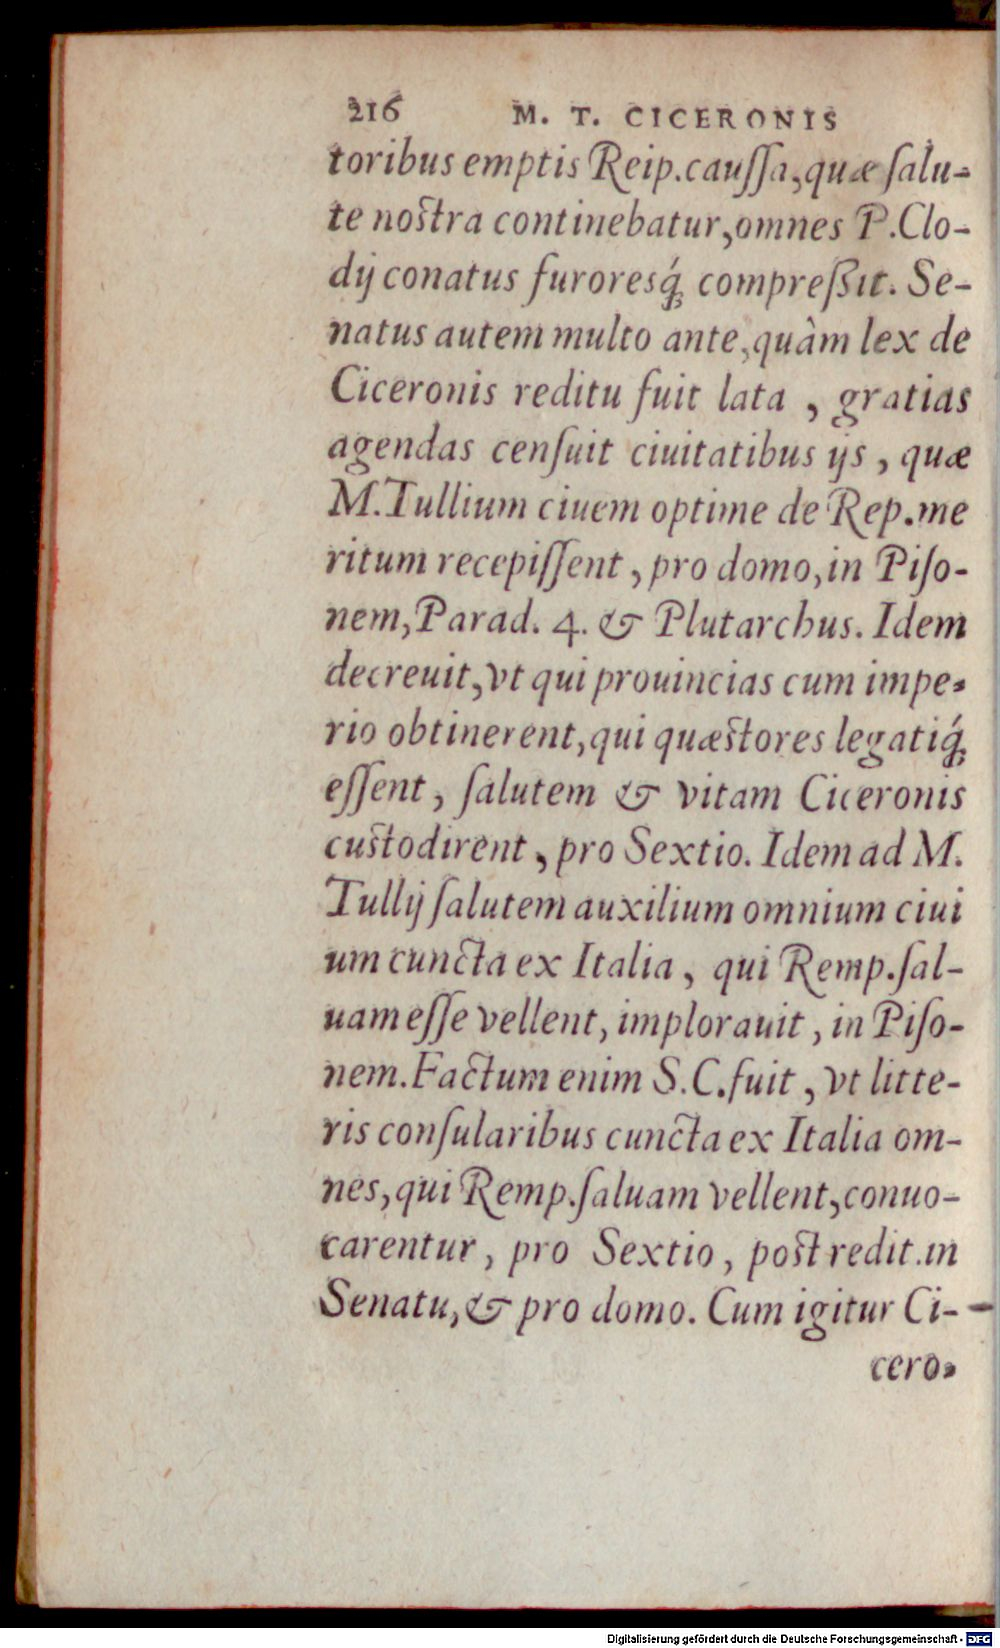 216 M. T. CICERONIS
toribus emptis Reip.cauſſa,quæ ſalu-
te noſtra continebatur,omnes P.Clo-
dij conatus furoresq́; compreßit. Se-
natus autem multo ante,quàm lex de
Ciceronis reditu fuit lata , gratias
agendas cenſuit ciuitatibus ijs , quæ
M.Tullium ciuem optime de Rep.me
ritum recepiſſent , pro domo,in Piſo-
nem,Parad. 4. & Plutarchus. Idem
decreuit,vt qui prouincias cum impe-
rio obtinerent,qui quæſtores legatiq́;
eſſent , ſalutem & vitam Ciceronis
cuſtodirent , pro Sextio. Idem ad M.
Tullij ſalutem auxilium omnium ciui
um cuncta ex Italia , qui Remp.ſal-
uam eſſe vellent, implorauit , in Piſo-
nem.Factum enim S.C.fuit , vt litte-
ris conſularibus cuncta ex Italia om-
nes,qui Remp.ſaluam vellent,conuo-
carentur , pro Sextio , poſt redit.in
Senatu,& pro domo. Cum igitur Ci-
cero-
Digitalisierung gefördert durch die Deutsche Forschungsgemeinschaft - DFG